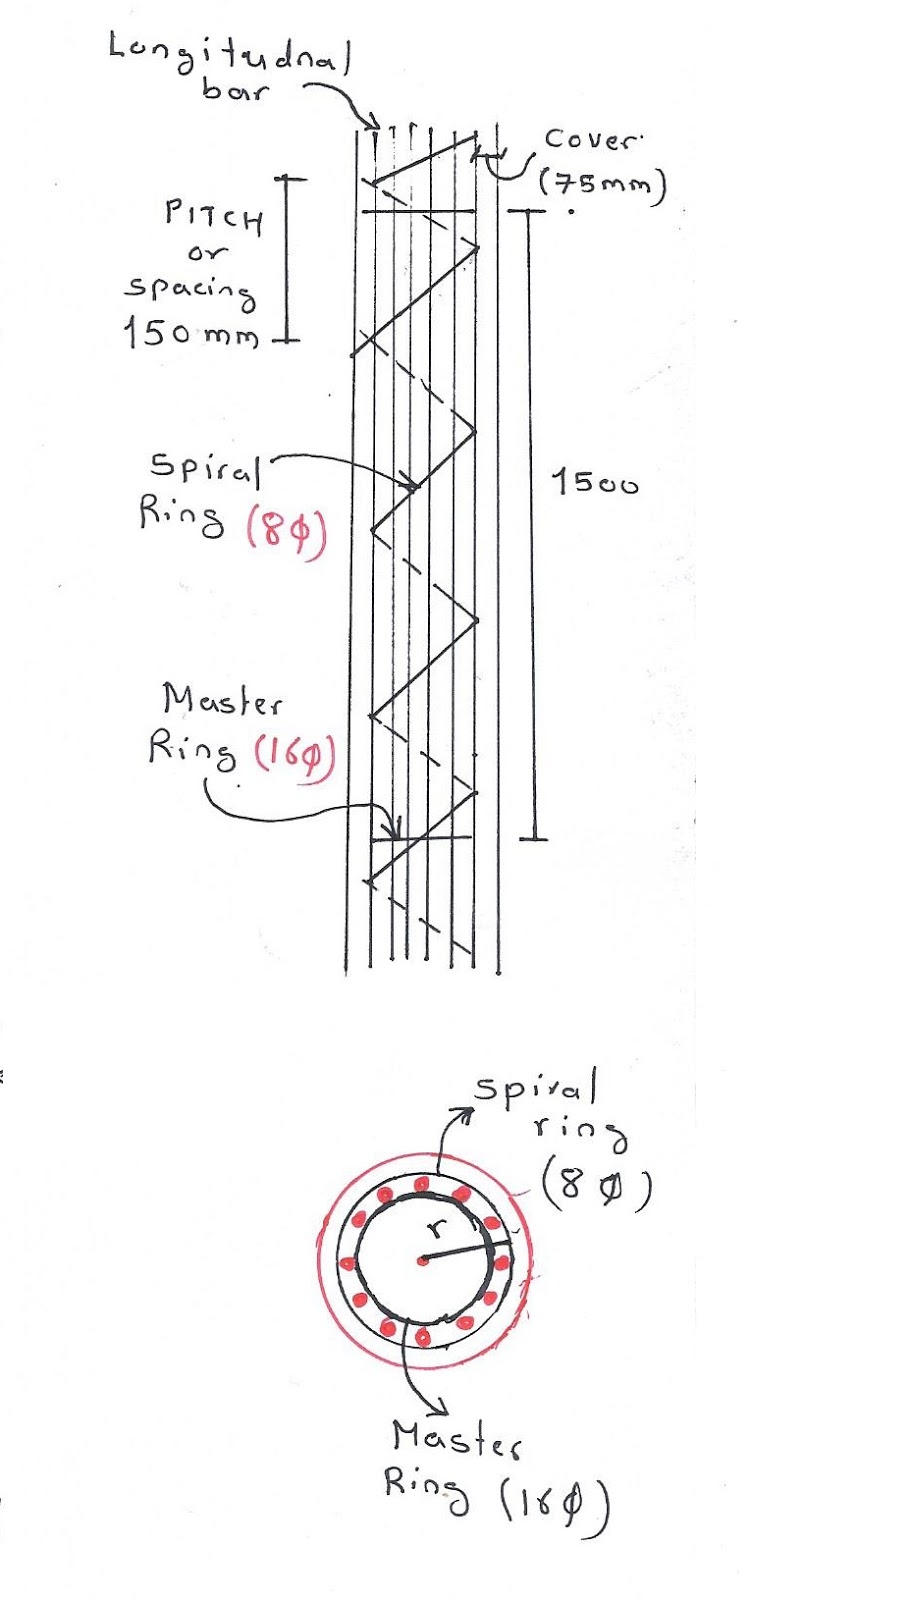 Longitudnal
bar
cover
(75mm)
PITCH
or
spacing
150 mm
1500
Spiral
Ring (8ϕ)
Master
Ring (16ϕ)
spiral
ring
(8ϕ)
r
Master
Ring (16ϕ)